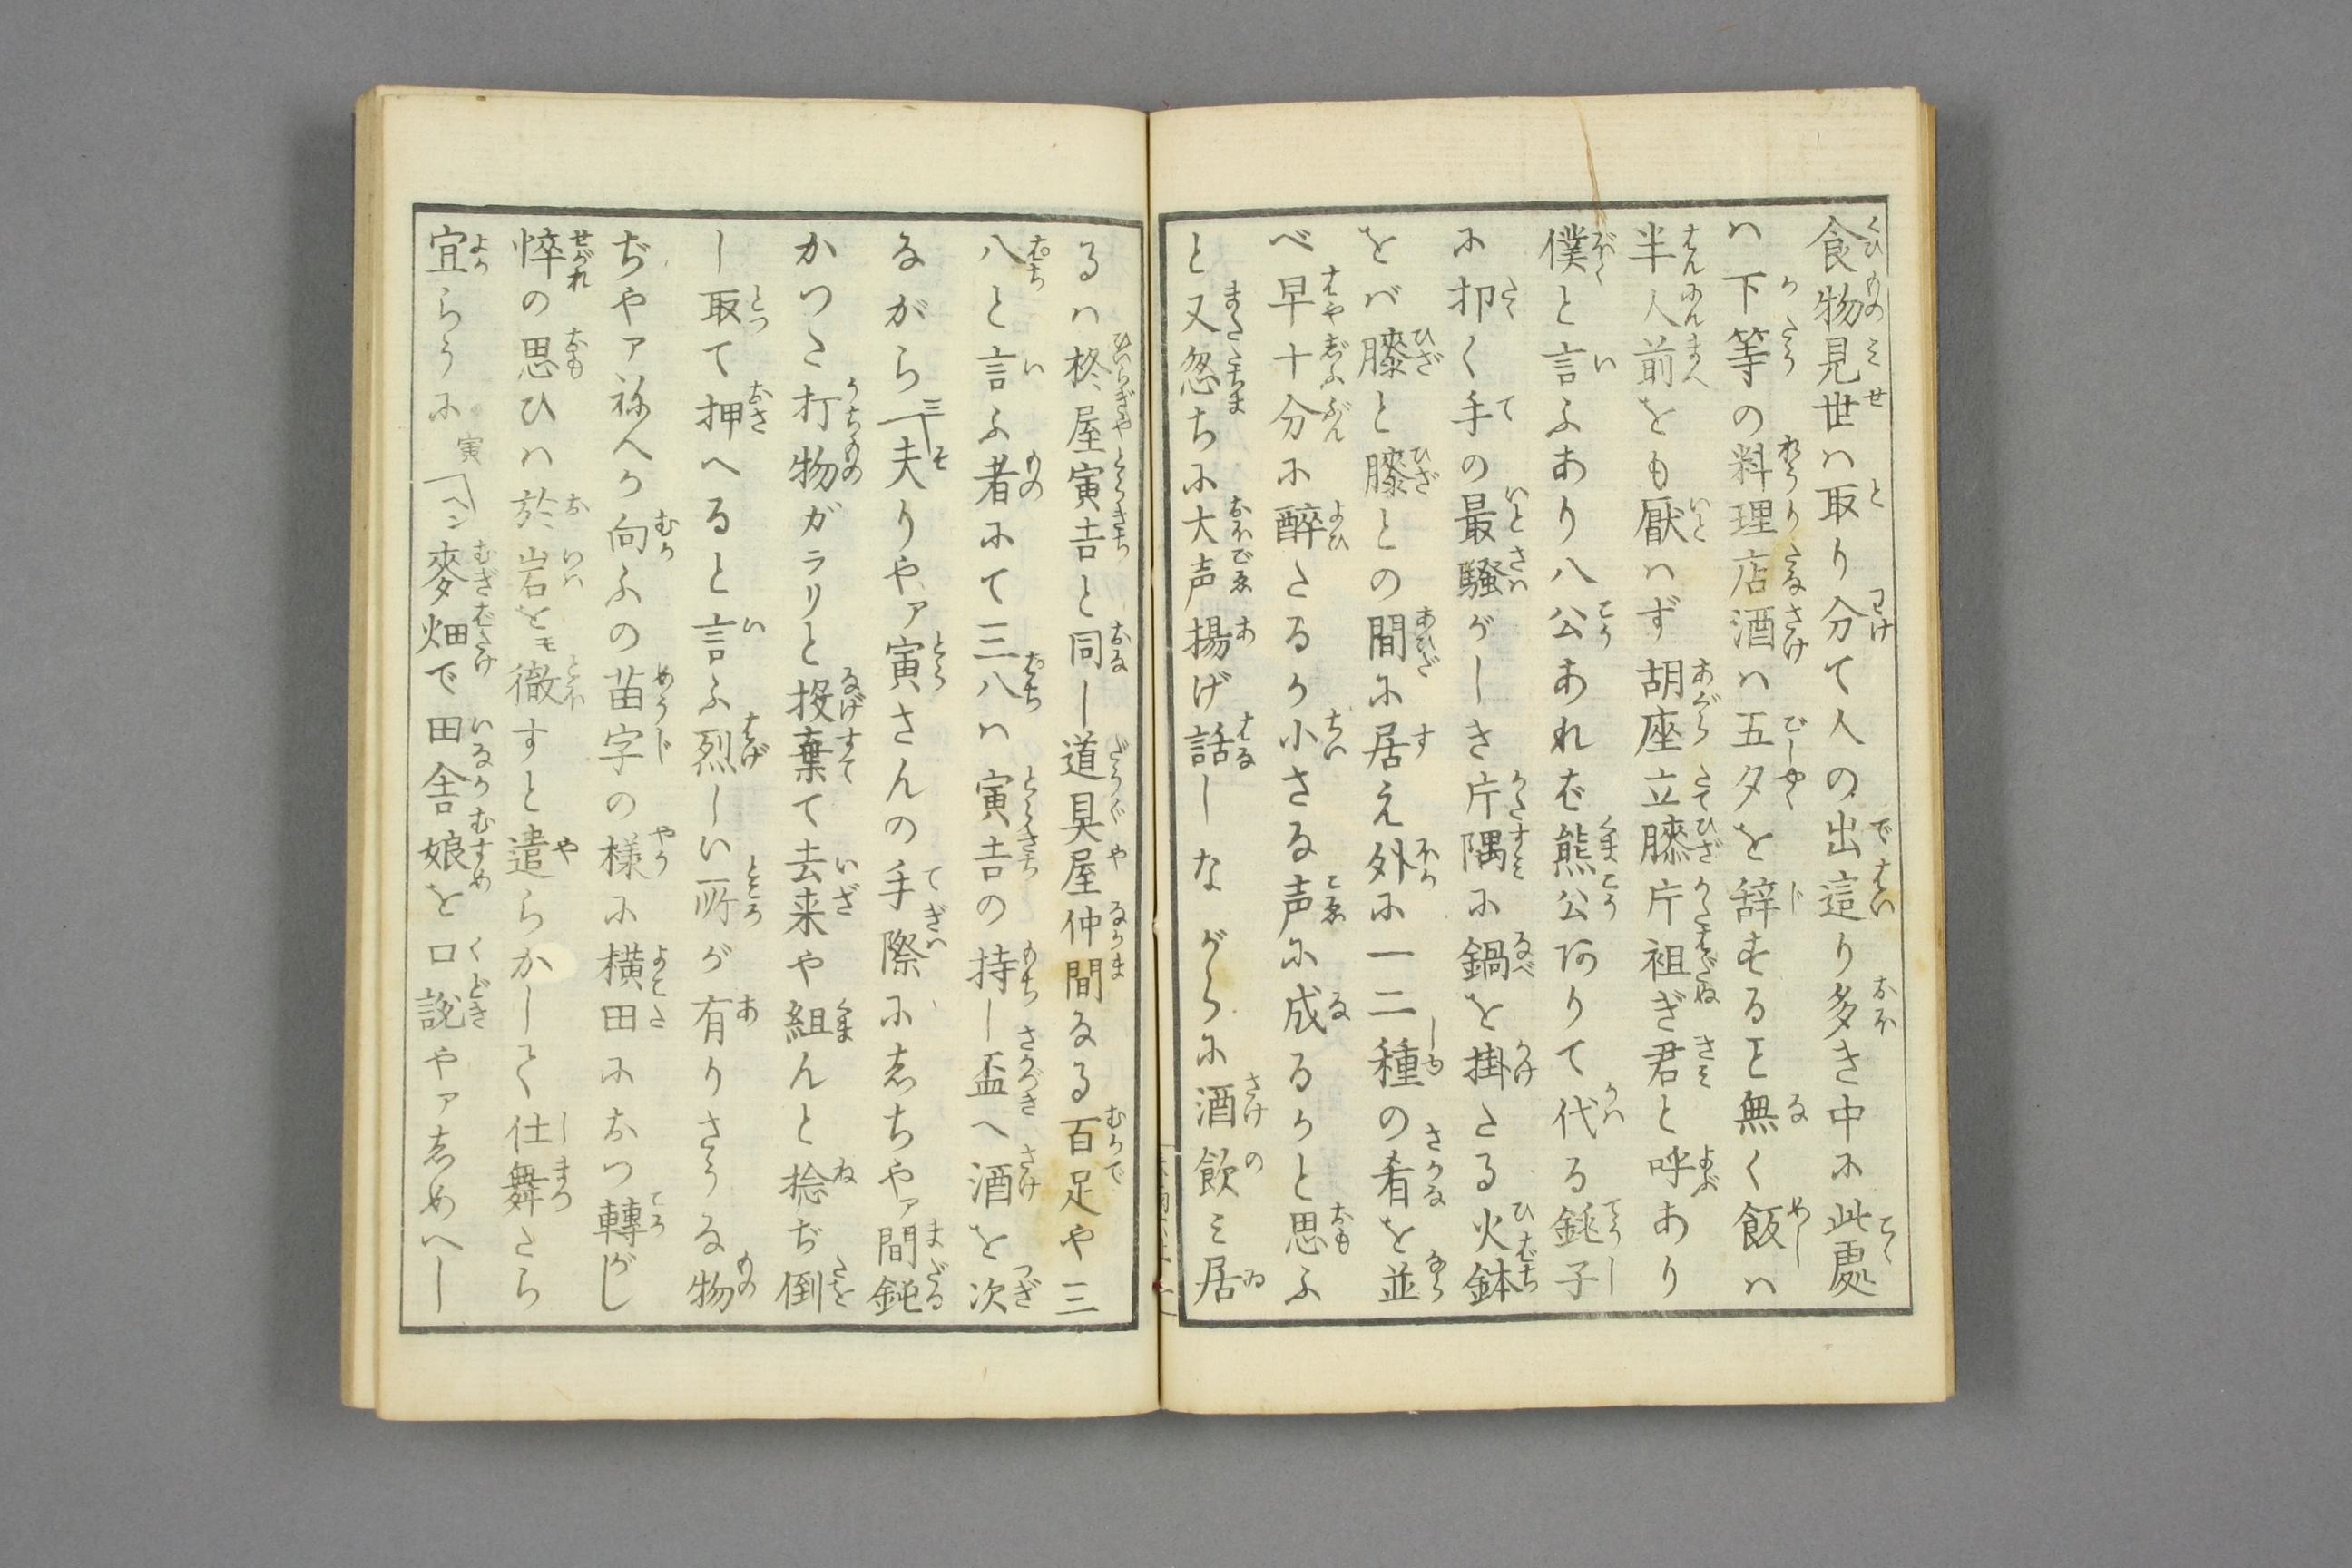 食物見世ハ取り分て人の出這り多き中に此處
ハ下等の料理店酒ハ五夕を辞するヿ無く飯ハ
半人前をも厭ハず胡座立膝片袒ぎ君と呼あり
僕と言ふあり八公あれば熊公ありて代る銚子
に叩く手の最騒がしき片隅に鍋を掛たる火鉢
をバ膝と膝との間に居え外に一二種の肴を並
べ早十分に醉たるか小さな声に成るかと思ふ
と又忽ちに大声揚げ話しながらに酒飲ミ居
るハ柊屋寅吉と同し道具屋仲間なる百足や三
八と言ふ者にて三八ハ寅吉の持し盃へ酒を次
ながら三「夫りやァ寅さんの手際にしちやァ間鈍
かつた打物ガラリと投棄て去来や組んと捻ぢ倒
し取て押へると言ふ烈しい所が有りさうな物
ぢやァ祢へか向ふの苗字の様に横田におつ轉がし
悴の思ひハ於岩をモ徹すと遣らかして仕舞たら
宜らうに寅「ヘン麥畑で田舎娘を口説やァしめへし